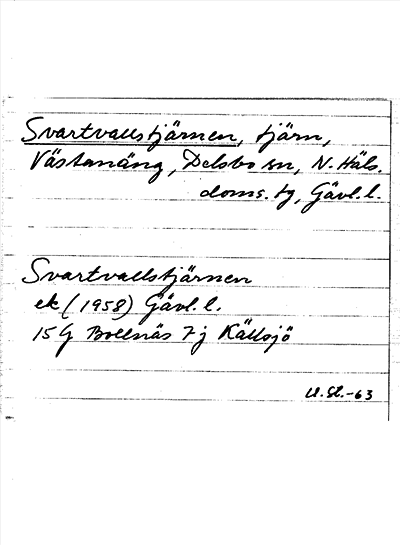 Svartvallstjärnen, tjärn,
Västanäng, Delsbo sn, N. Häls.
doms. tg, Gävl. l.
Svartvallstjärnen
ek (1958) Gävl. l.
15 G Bollnäs 7 j Källsjö
U. St. -63